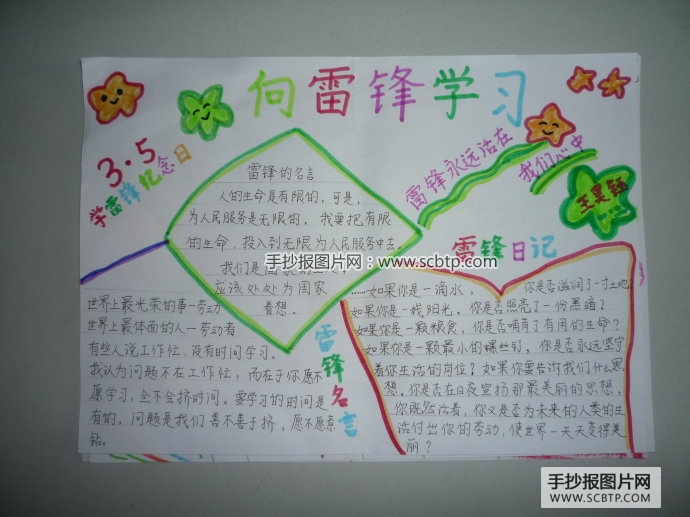 向雷锋学习
3·5
学雷锋忆念日
雷锋永远活在
我们心中
雷锋的名言
人的生命是有限的,可是,
为人民服务是无限的、我要把有限
的生命,投入到无限为人民服务中去。
我们是国家的
应该处处为国家
着想。
手抄报图片网:www.scbtp.com
世界上最光荣的事—劳动
世界上最体面的人—劳动者
有些人说工作忙,没有时间学习。
我认为问题不在工作忙,而在于你愿不
愿学习,会不会挤时间。要学习的时间是
有的,问题是我们善不善于挤,愿不愿意
钻。
雷锋名言
雷锋日记
……如果你是一滴水,你是否滋润了一寸土地
如果你是一线阳光,你是否照亮了一份黑暗?
如果你是一颗粮食,你是否哺育了有用的生命?
如果你是一颗最小的螺丝钉,你是否永远坚守
着你生活的岗位?如果你要告诉我们什么思
想,你是否在日夜宣扬那最美丽的思想、
你既然活着,你又是否为未来的人类的生
活付出你的劳动,使世界一天天变得美
丽?
手抄报图片网
WWW.SCBTP.COM